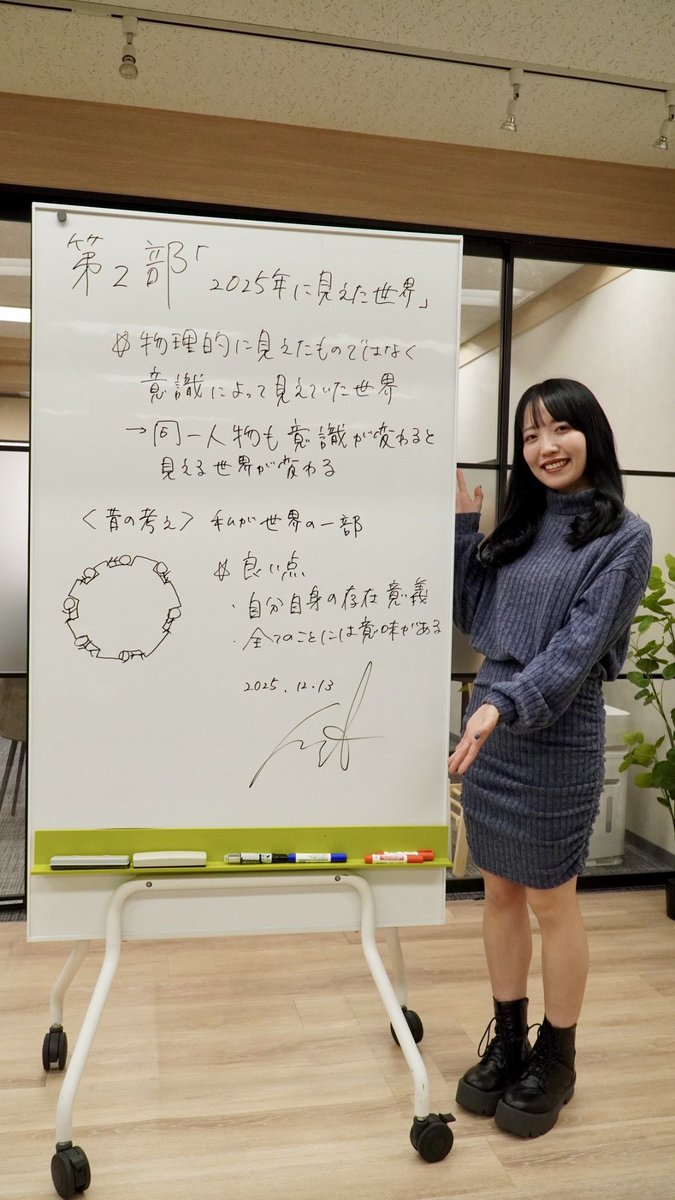 第2部「2025年に見えた世界」
☆物理的に見えたものではなく
意識によって見えていた世界
→同一人物も意識が変わると
見える世界が変わる
〈昔の考え〉 私が世界の一部
☆良い点
・自分自身の存在意義
・全てのことには意味がある
2025.12.13